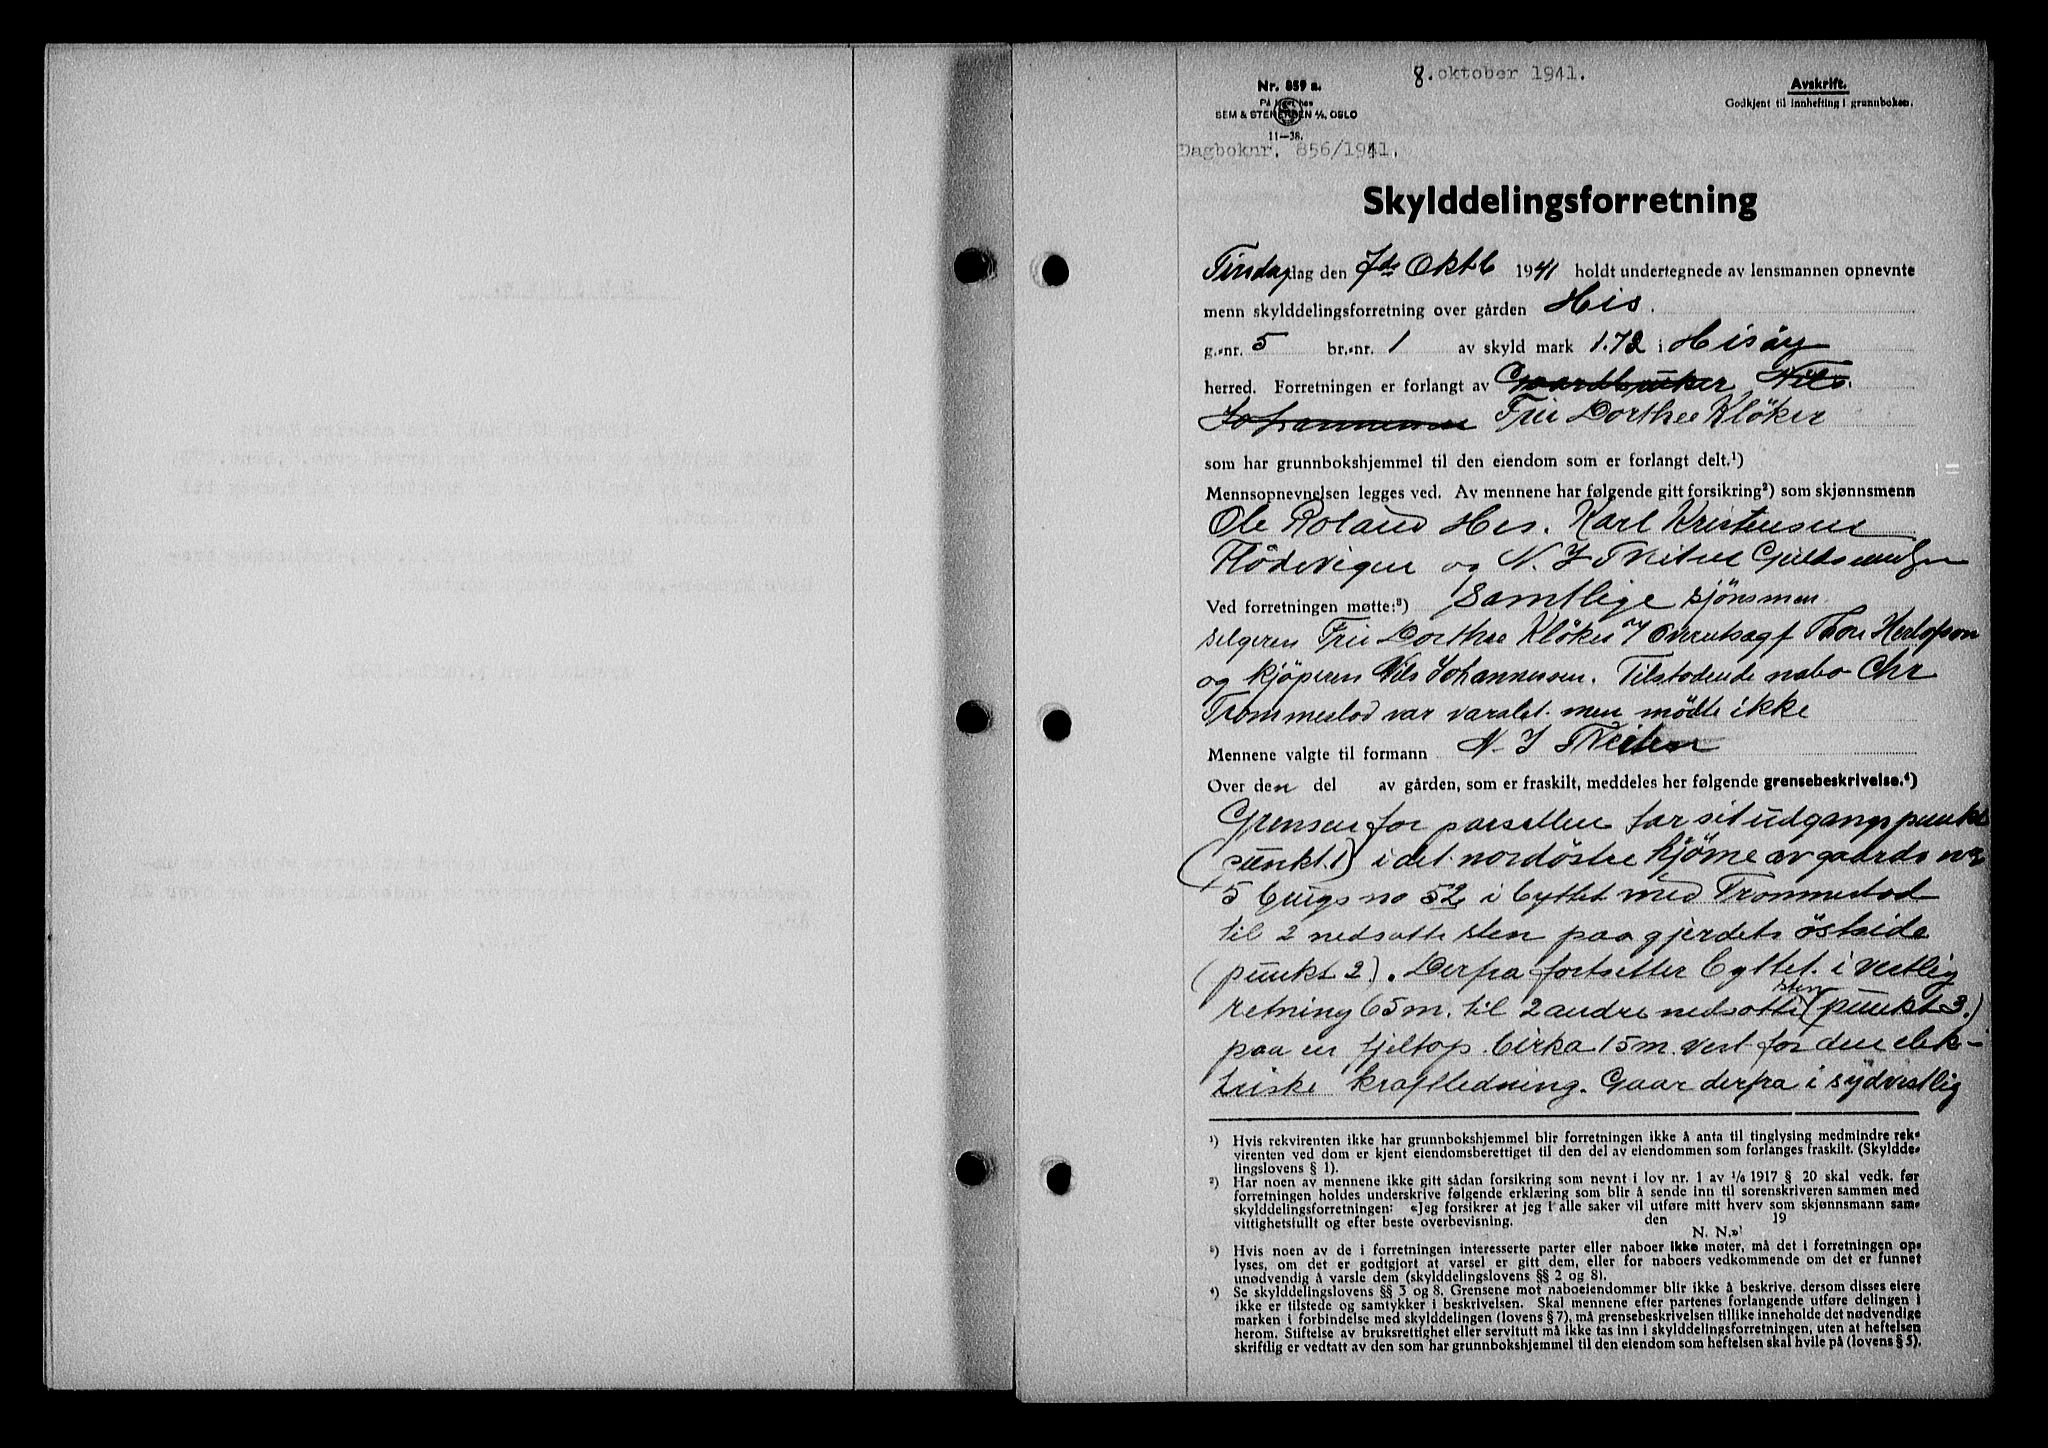 8. oktober 1941.
Nr. 859 a.
På lager hos
SEM & STENERSEN A/S, OSLO
11—38.
Avskrift.
Godkjent til innhefting i grunnboken.
Dagboknr. 856/1941.
Skylddelingsforretning
Tirsdag dag den 7de Oktb 1941 holdt undertegnede av lensmannen opnevnte
menn skylddelingsforretning over gården His.
g.-nr. 5 br.-nr. 1 av skyld mark 1.72 i Hisöy
herred. Forretningen er forlangt av Gaardbruker Nils
Johannessen Frue Dorthea Klöker
som har grunnbokshjemmel til den eiendom som er forlangt delt.¹)
Mennsopnevnelsen legges ved. Av mennene har følgende gitt forsikring²) som skjønnsmenn
Ole Roland His. Karl Kristensen
Flödevigen og N. J. Tveiten
Ved forretningen møtte:³) Samtlige sjönsmen
selgeren Frue Dorthea Klöker Thor Herlofson
og kjöperen Nils Johannessen. Tilstodende nabo Chr
Trommestad var varslet men mödte ikke
Mennene valgte til formann N. J. Tveiten
Over den del av gården, som er fraskilt, meddeles her følgende grensebeskrivelse.⁴)
Grensen for parsellen har sit udgangspunkt
(punkt 1) i det nordöstre hjörne av gaards no
5 brugs no 52 i byttet med Trommestad
til 2 nedsatte sten paa gjerdets östside
(punkt 2). Derfra fortsetter byttet i vestlig
retning 65 m. til 2 andre nedsatte sten (punkt 3.)
paa en fjeltop cirka 15 m. vest for den elek-
triske kraftledning. Gaar derfra i sydvestlig
¹) Hvis rekvirenten ikke har grunnbokshjemmel blir forretningen ikke å anta til tinglysing medmindre rek-
virenten ved dom er kjent eiendomsberettiget til den del av eiendommen som forlanges fraskilt. (Skyldde-
lingslovens § 1).
²) Har noen av mennene ikke gitt sådan forsikring som nevnt i lov nr. 1 av 1/6 1917 § 20 skal vedk. før
forretningen holdes underskrive følgende erklæring som blir å sende inn til sorenskriveren sammen med
skylddelingsforretningen: «Jeg forsikrer at jeg i alle saker vil utføre mitt hverv som skjønnsmann sam-
vittighetsfullt og efter beste overbevisning. den 19
N. N.»
³) Hvis noen av de i forretningen interesserte parter eller naboer ikke møter, må det i forretningen op-
lyses, om det er godtgjort at varsel er gitt dem, eller for naboers vedkommende om det er funnet
unødvendig å varsle dem (skylddelingslovens §§ 2 og 8).
⁴) Se skylddelingslovens §§ 3 og 8. Grensene mot naboeiendommer blir ikke å beskrive, dersom disses eiere
ikke er tilstede og samtykker i beskrivelsen. Skal mennene efter partenes forlangende utføre delingen i
marken i forbindelse med skylddelingen (lovens § 7), må grensebeskrivelsen tillike inneholde det nødvendige
herom. Stiftelse av bruksrettighet eller servitutt må ikke tas inn i skylddelingsforretningen, uten at heftelsen
skriftlig er vedtatt av den som har grunnbokshjemmel til den eiendom som heftelsen skal hvile på (lovens § 5).